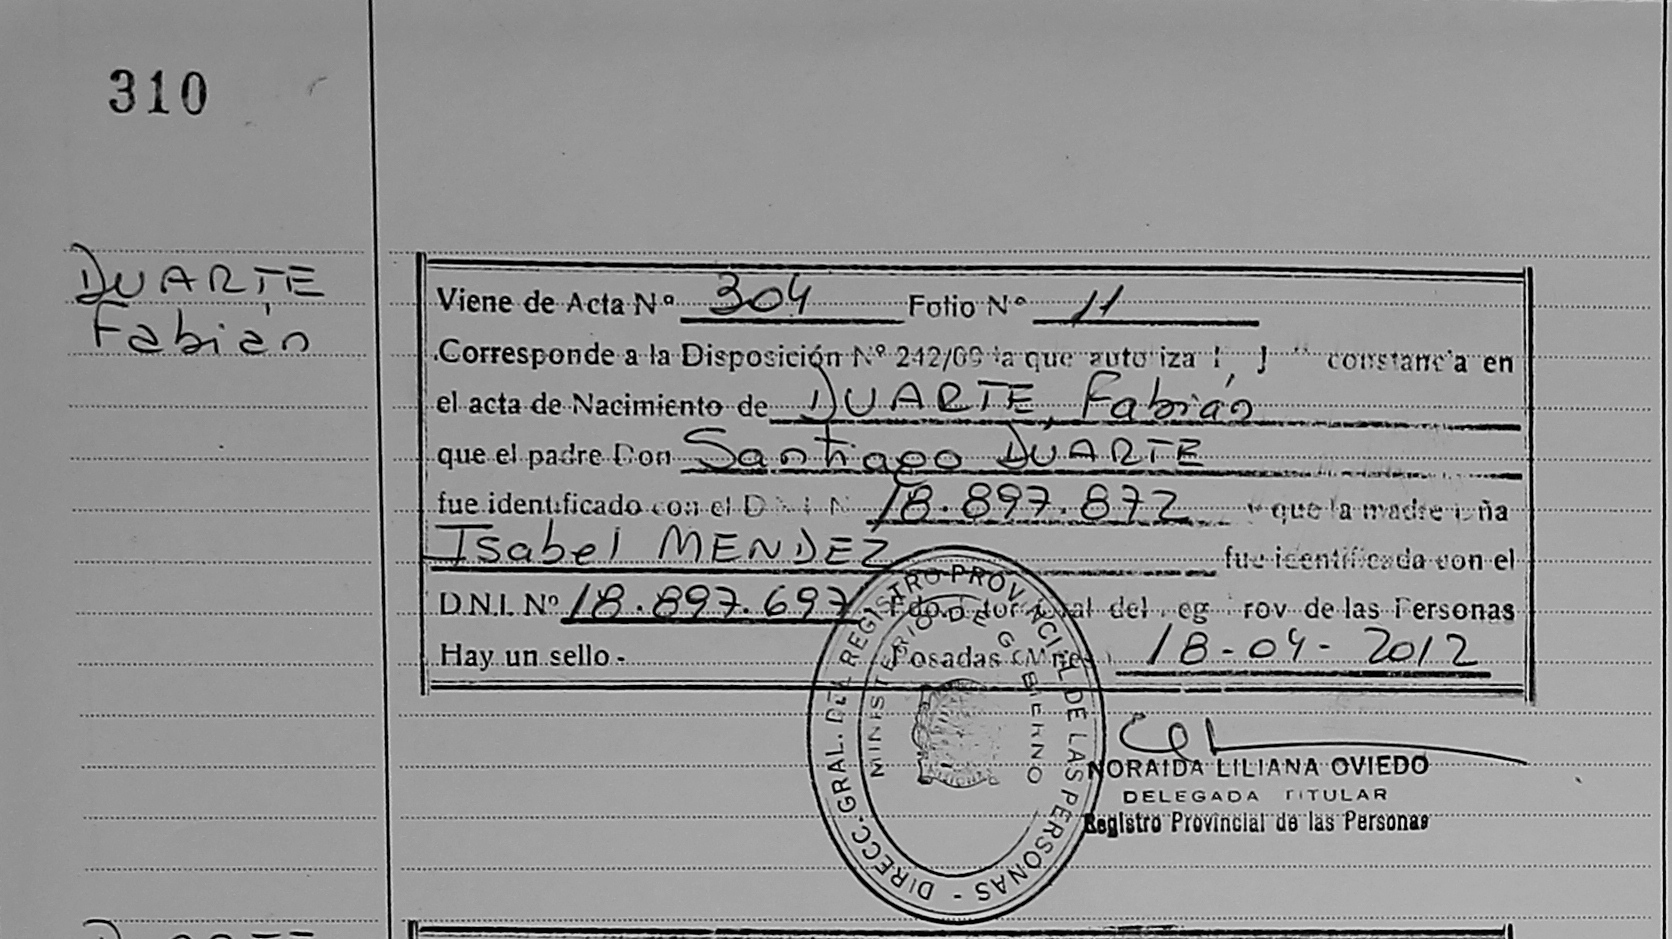 310
DUARTE
Fabián
Viene de Acta Nº 304 Folio Nº 11
Corresponde a la Disposición Nº 242/09 la que autoriza constancia en
el acta de Nacimiento de DUARTE, Fabián
que el padre Don Santiago DUARTE
fue identificado con el D.N.I. Nº 18.897.872 y que la madre Doña
Isabel MENDEZ fue identificada con el
D.N.I. Nº 18.897.697 - Fdo. del Reg. Prov. de las Personas
Hay un sello - Posadas (Mnes) 18-04-2012
DIRECC. GRAL. DEL REGISTRO PROVINCIAL DE LAS PERSONAS -
MINISTERIO DE GOBIERNO
NORAIDA LILIANA OVIEDO
DELEGADA TITULAR
Registro Provincial de las Personas